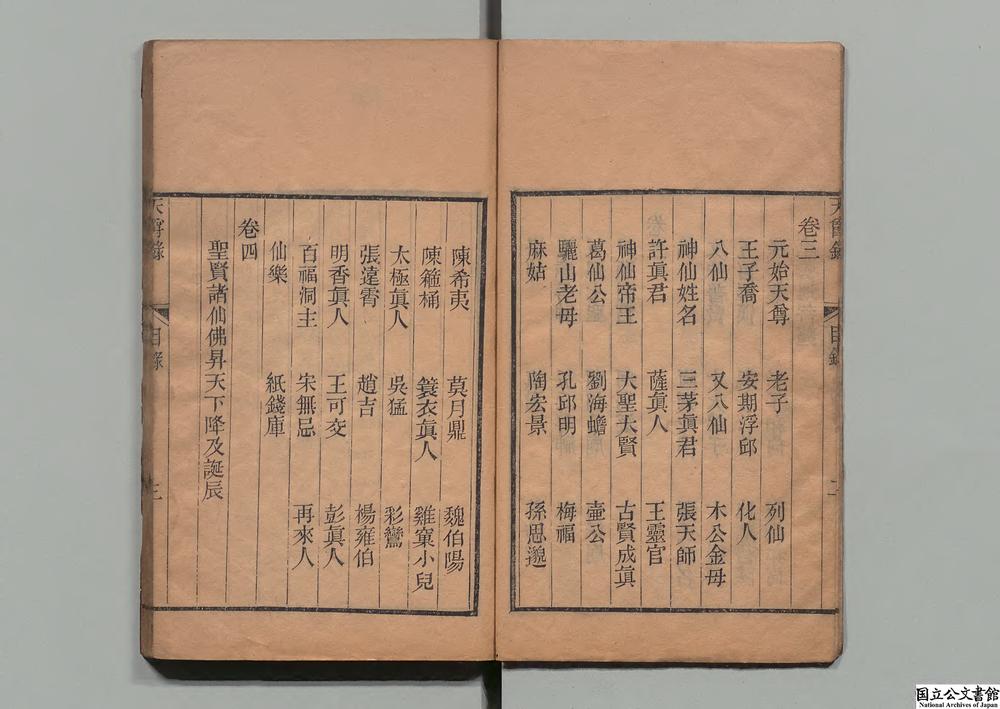 卷三
元始天尊 老子 列仙
王子喬 安期浮邱 化人
八仙 又八仙 木公金母
神仙姓名 三茅眞君 張天師
許眞君 薩眞人 王靈官
神仙帝王 大聖大賢 古賢成眞
葛仙公 劉海蟾 壺公
驪山老母 孔邱明 梅福
麻姑 陶宏景 孫思邈
目錄
二
陳希夷 莫月鼎 魏伯陽
陳箍桶 簑衣眞人 雞窠小兒
太極眞人 吳猛 彩鸞
張遠霄 趙吉 楊雍伯
明香眞人 王可交 彭眞人
百福洞主 宋無忌 再來人
仙樂 紙錢庫
卷四
聖賢諸仙佛昇天下降及誕辰
目錄
三
国立公文書館
National Archives of Japan